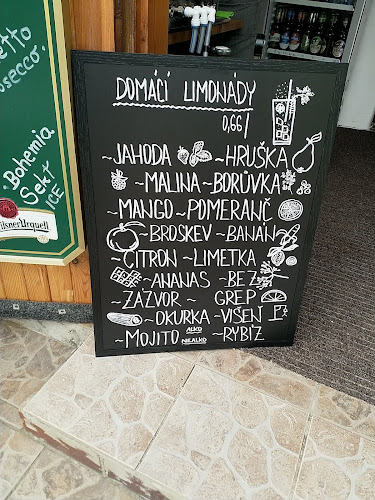 etto
osecco.
Bohemia
Sekt
ICE
Pilsner Urquell
DOMÁCÍ LIMONÁDY
0,66l
~JAHODA ~HRUŠKA
~MALINA ~BORŮVKA
~MANGO ~POMERANČ
~BROSKEV ~BANÁN
~CITRON ~LIMETKA
~ANANAS ~BEZ
~ZÁZVOR ~ GREP
~OKURKA ~VIŠEŇ
~MOJITO ALKO NEALKO ~RYBÍZ